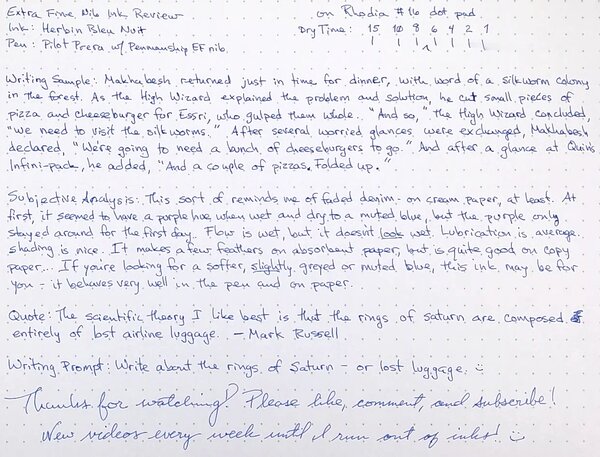 Extra Fine Nib Ink Review on Rhodia #16 dot pad
Ink: Herbin Bleu Nuit Dry Time: 15 10 8 6 4 2 1
Pen: Pilot Prera w/ Penmanship EF nib
Writing Sample: Makhabesh returned just in time for dinner, with word of a silkworm colony
in the forest. As the High Wizard explained the problem and solution, he cut small pieces of
pizza and cheeseburger for Essri, who gulped them whole. "And so," the High Wizard concluded,
"we need to visit the silkworms." After several worried glances were exchanged, Makhabesh
declared, "We're going to need a bunch of cheeseburgers to go." And after a glance at Quin's
Infini-pack, he added, "And a couple of pizzas. Folded up."
Subjective Analysis: This sort of reminds me of faded denim - on cream paper, at least. At
first, it seemed to have a purple hue when wet and dry to a muted blue, but the purple only
stayed around for the first day. Flow is wet, but it doesn't look wet. Lubrication is average.
Shading is nice. It makes a few feathers on absorbent paper, but is quite good on copy
paper... If you're looking for a softer, slightly greyed or muted blue, this ink may be for
you - it behaves very well in the pen and on paper.
Quote: The scientific theory I like best is that the rings of Saturn are composed
entirely of lost airline luggage. - Mark Russell
Writing Prompt: Write about the rings of Saturn - or lost luggage. :)
Thanks for watching! Please like, comment, and subscribe!
New videos every week until I run out of inks! :)